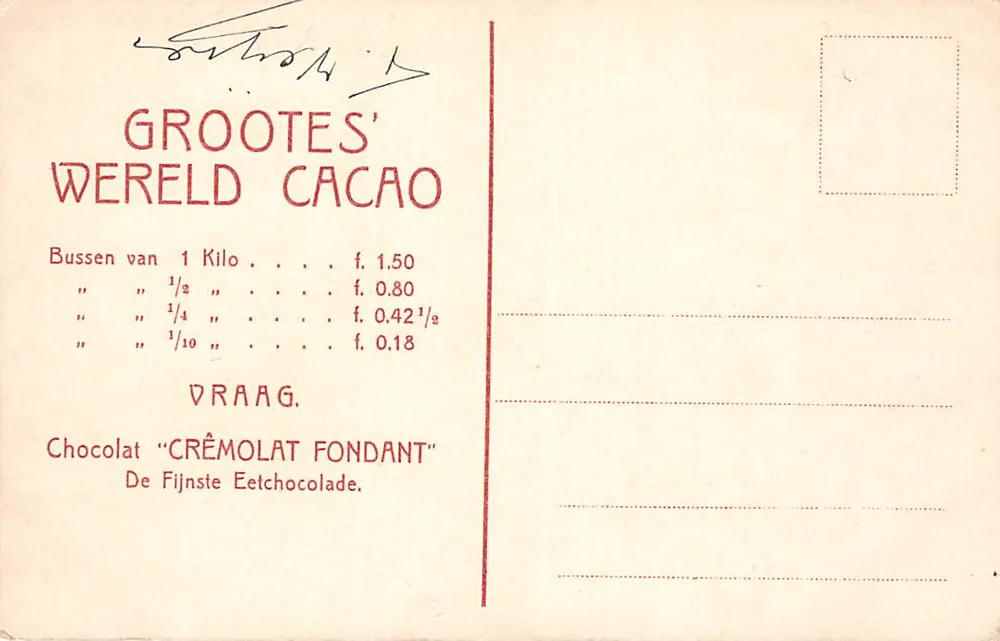 GROOTES'
WERELD CACAO
Bussen van 1 Kilo . . . . f. 1.50
„ „ 1/2 „ . . . . f. 0.80
„ „ 1/4 „ . . . . f. 0.42 1/2
„ „ 1/10 „ . . . . f. 0.18
VRAAG.
Chocolat "CRÊMOLAT FONDANT"
De Fijnste Eetchocolade.